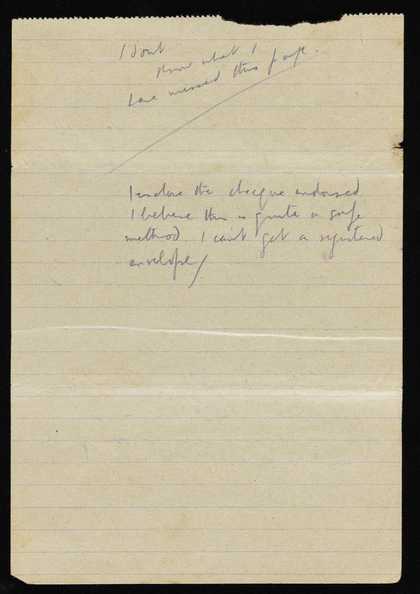 I don't
know what I
have missed this page.
I enclose the cheque endorsed
I believe this is quite a safe
method. I can't get a registered
envelope/